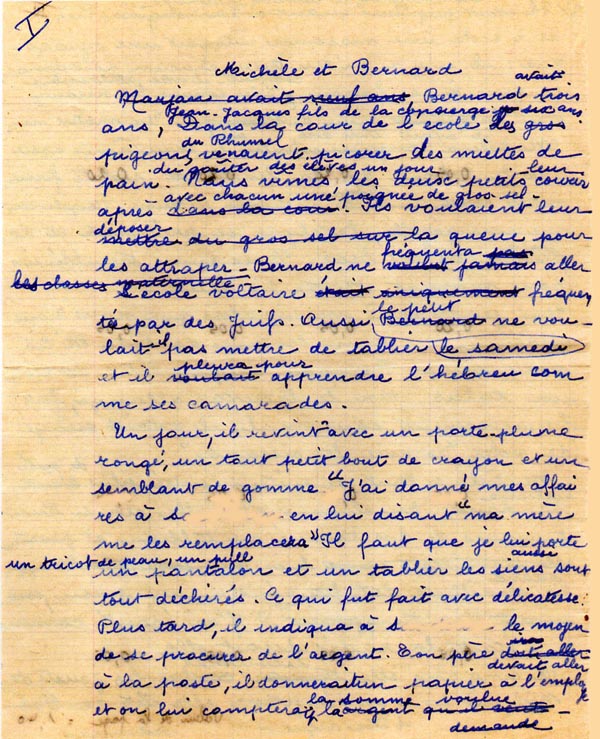 I
Michèle et Bernard
avait
Marjan avait neuf ans Bernard trois
Jean-Jacques fils de la concierge six ans
ans, Dans la cour de l'ecole des gros
du Rhumel
pigeons venaient picorer des miettes de
du goûter des élèves un jour leur
pain. Nous vimes, les deux petits courir
avec chacun une poignée de gros sel-
après dans la cour. Ils voulaient leur
déposer
mettre du gros sel sur la queue pour
fréquenta pas
les attraper - Bernard ne voulut jamais aller
les classes maternelle
l'école voltaire était uniquement fréquen
le petit
té par des Juifs. Aussi Bernard ne vou-
lait il pas mettre de tablier le samedi
pleura pour
et il voulait apprendre l'hébreu com
me ses camarades.
Un jour, il revint avec un porte-plume
rongé, un tout petit bout de crayon et un
semblant de gomme "J'ai donné mes affai
res à S en lui disant "ma mère
me les remplacera" Il faut que je lui porte
un tricot de peau, un pull aussi
un pantalon et un tablier les siens sont
tout déchirés. Ce qui fut fait avec délicatesse.
Plus tard, il indiqua à S le moyen
ira
de se procurer de l'argent. Ton père doit aller
devait aller
à la poste, il donnerait un papier à l'employé
la somme voulue
et on lui compterai l'argent
demandé